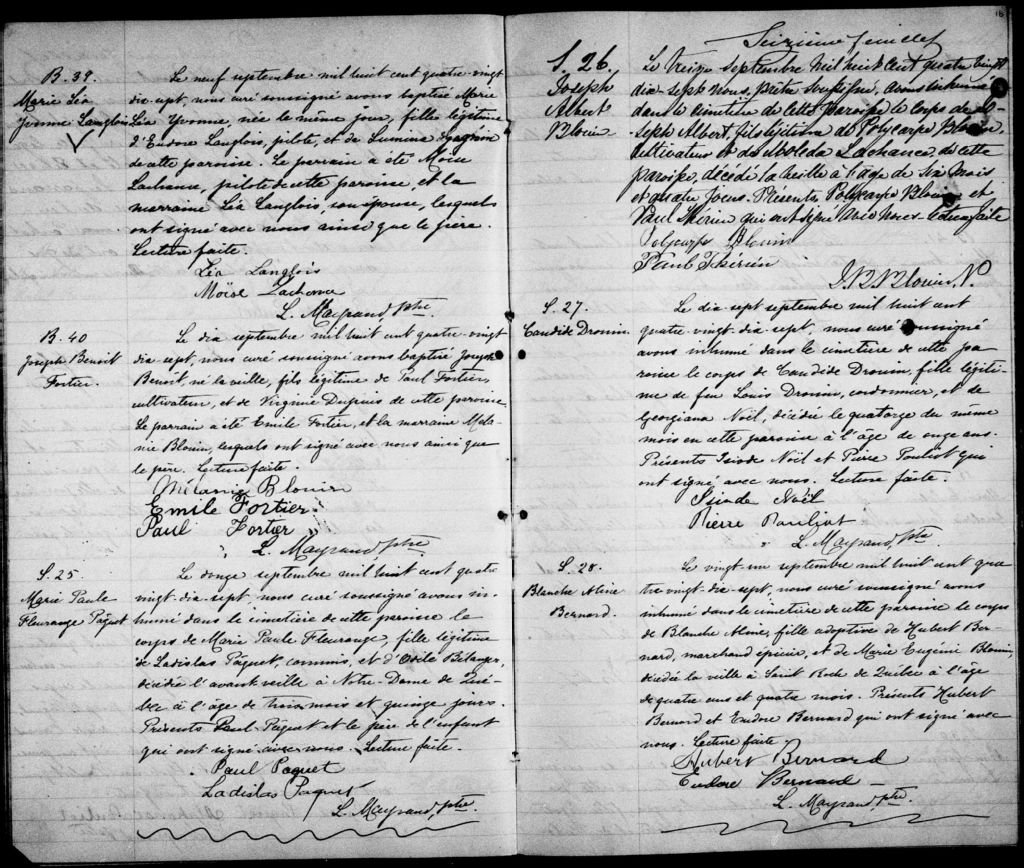 B. 39.
Marie Léa
Yvonne Langlois
Le neuf septembre mil huit cent quatre vingt
dix-sept, nous curé soussigné avons baptisé Marie
Léa Yvonne, née le même jour, fille légitime
d'Eudore Langlois, pilote, et de Lumina Gagnon
de cette paroisse. Le parrain a été Moïse
Lachance, pilote de cette paroisse, et la
marraine Léa Langlois, son épouse, lesquels
ont signé avec nous ainsi que le père.
Lecture faite.
Léa Langlois
Moïse Lachance
L. Mayrand ptre
B. 40
Joseph Benoit
Fortier.
Le dix septembre mil huit cent quatre-vingt
dix sept, nous curé soussigné avons baptisé Joseph
Benoit, né la veille, fils légitime de Paul Fortier,
cultivateur, et de Virginie Dupuis de cette paroisse.
Le parrain a été Emile Fortier, et la marraine Méla
nie Blouin, lesquels ont signé avec nous ainsi que
le père. Lecture faite.
Mélanie Blouin
Emile Fortier
Paul Fortier
L. Mayrand ptre
S. 25
Marie Paule
Fleurange Paquet
Le douze septembre mil huit cent quatre
vingt-dix-sept, nous curé soussigné avons in-
humé dans le cimetière de cette paroisse le
corps de Marie Paule Fleurange, fille légitime
de Ladislas Paquet, commis, et d'Odile Bélanger,
décédée l'avant veille à Notre-Dame de Qué-
bec à l'âge de trois mois et quinze jours.
Présents Paul Paquet et le père de l'enfant
qui ont signé avec nous. Lecture faite.
Paul Paquet
Ladislas Paquet
L. Mayrand, ptre.
16
Seizième feuillet
S. 26.
Joseph
Albert
Blouin
Le treize septembre mil huit cent quatre vingt
dix-sept nous, prêtre soussigné, avons inhumé
dans le cimetière de cette paroisse le corps de Jo-
seph Albert, fils légitime de Polycarpe Blouin,
cultivateur et de Lachance, de cette
paroisse, décédé la veille à l'age de six mois
et quatre jours. Présents Polycarpe Blouin et
Paul Thérien qui ont signé avec nous. Lecture faite
Polycarpe Blouin
Paul Thérien
J.B. Blouin, P.
S. 27.
Candide Drouin
Le dix sept septembre mil huit cent
quatre vingt-dix sept, nous curé soussigné
avons inhumé dans le cimetière de cette pa
roisse le corps de Candide Drouin, fille légiti-
me de feu Louis Drouin, cordonnier, et de
Georgiana Noël, décédée le quatorze du même
mois en cette paroisse à l'âge de onze ans.
Présents Isiode Noël et Pierre Pouliot qui
ont signé avec nous. Lecture faite.
Isiode Noël
Pierre Pouliot
L. Mayrand, ptre
S. 28.
Blanche Aline
Bernard.
Le vingt un septembre mil huit cent qua
tre vingt-dix-sept, nous curé soussigné avons
inhumé dans le cimetière de cette paroisse le corps
de Blanche Aline, fille adoptive de Hubert Ber-
nard, marchand épicier, et de Marie Eugénie Blouin,
décédée la veille à Saint Roch de Québec à l'âge
de quatre ans et quatre mois. Présents Hubert
Bernard et Eudore Bernard qui ont signé avec
nous. Lecture faite
Hubert Bernard
Eudore Bernard
L. Mayrand, ptre.